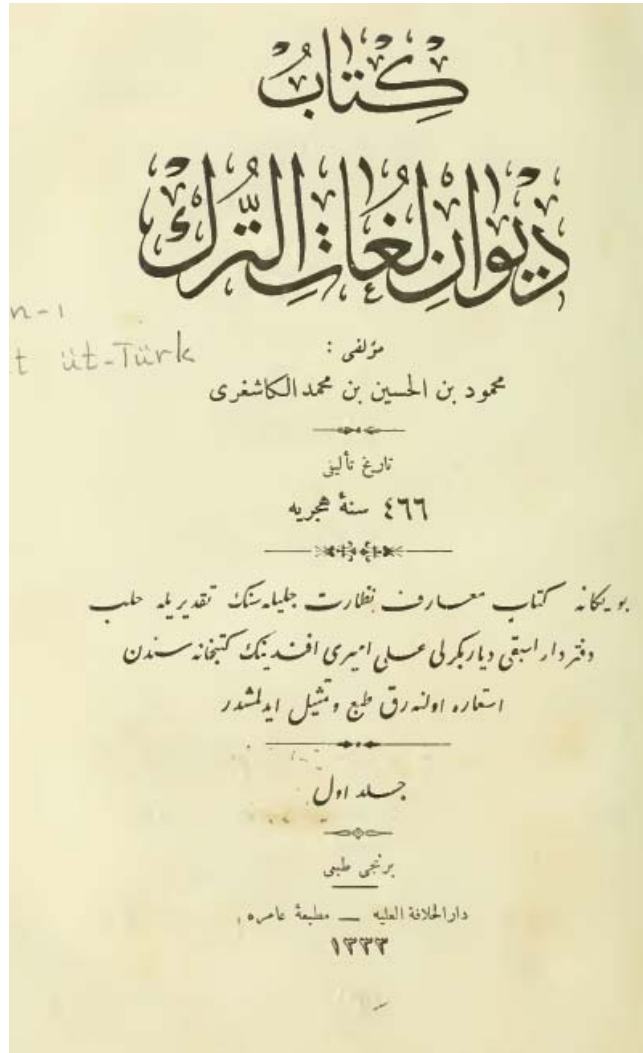 كِتَابُ
دِيوَانِ لُغَاتِ التُّرْكِ
n-ı
t üt-Türk
مؤلفى :
محمود بن الحسين بن محمد الكاشغرى
تاريخ تأليفى
٤٦٦ سنۀ هجريه
بو يكانه كتاب معارف نظارت جليله سنك تقديريله حلب
دفتردار اسبقى ديار بكرلى على اميرى افندينك كتبخانه سندن
استعاره اولنه رق طبع وتمثيل ايدلمشدر
جلد اول
برنجى طبعى
دار الخلافة العليه — مطبعۀ عامره
١٣٣٣